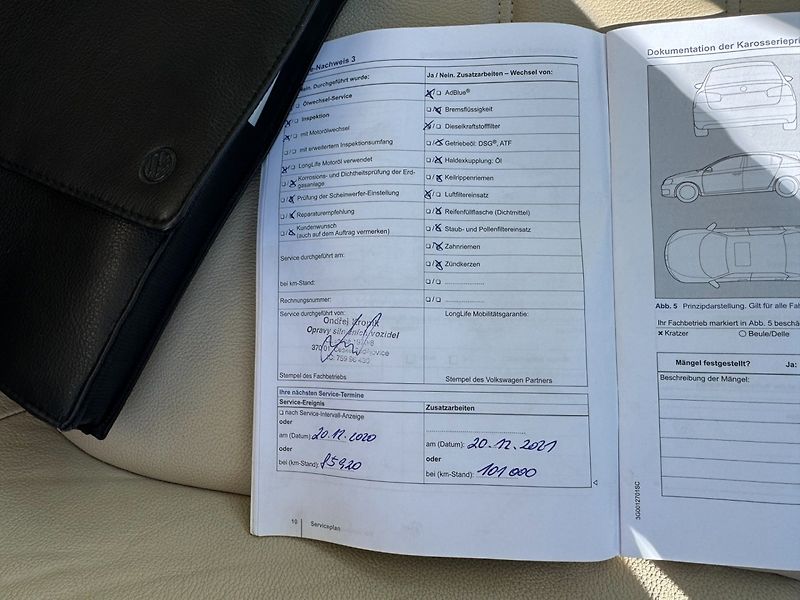 e-Nachweis 3
Nein. Durchgeführt wurde:
Ölwechsel-Service
Inspektion
mit Motorölwechsel
mit erweitertem Inspektionsumfang
LongLife Motoröl verwendet
Korrosions- und Dichtheitsprüfung der Erd-
gasanlage
Prüfung der Scheinwerfer-Einstellung
Reparaturempfehlung
Kundenwunsch
(auch auf dem Auftrag vermerken)
Service durchgeführt am:
bei km-Stand:
Rechnungsnummer:
Service durchgeführt von:
Ondřej
Opravy silničních vozidel
370 01
Stempel des Fachbetriebs
Ja / Nein. Zusatzarbeiten – Wechsel von:
AdBlue®
Bremsflüssigkeit
Dieselkraftstofffilter
Getriebeöl: DSG®, ATF
Haldexkupplung: Öl
Keilrippenriemen
Luftfiltereinsatz
Reifenfüllflasche (Dichtmittel)
Staub- und Pollenfiltereinsatz
Zahnriemen
Zündkerzen
LongLife Mobilitätsgarantie:
Stempel des Volkswagen Partners
Ihre nächsten Service-Termine
Service-Ereignis
nach Service-Intervall-Anzeige
oder
am (Datum): 20.12.2020
oder
bei (km-Stand): 85920
Zusatzarbeiten
am (Datum): 20.12.2021
oder
bei (km-Stand): 101 000
10 Serviceplan
Dokumentation der Karosseriepr
Abb. 5 Prinzipdarstellung. Gilt für alle Fah
Ihr Fachbetrieb markiert in Abb. 5 beschä
Kratzer
Beule/Delle
Mängel festgestellt? Ja:
Beschreibung der Mängel:
3G0012701SC